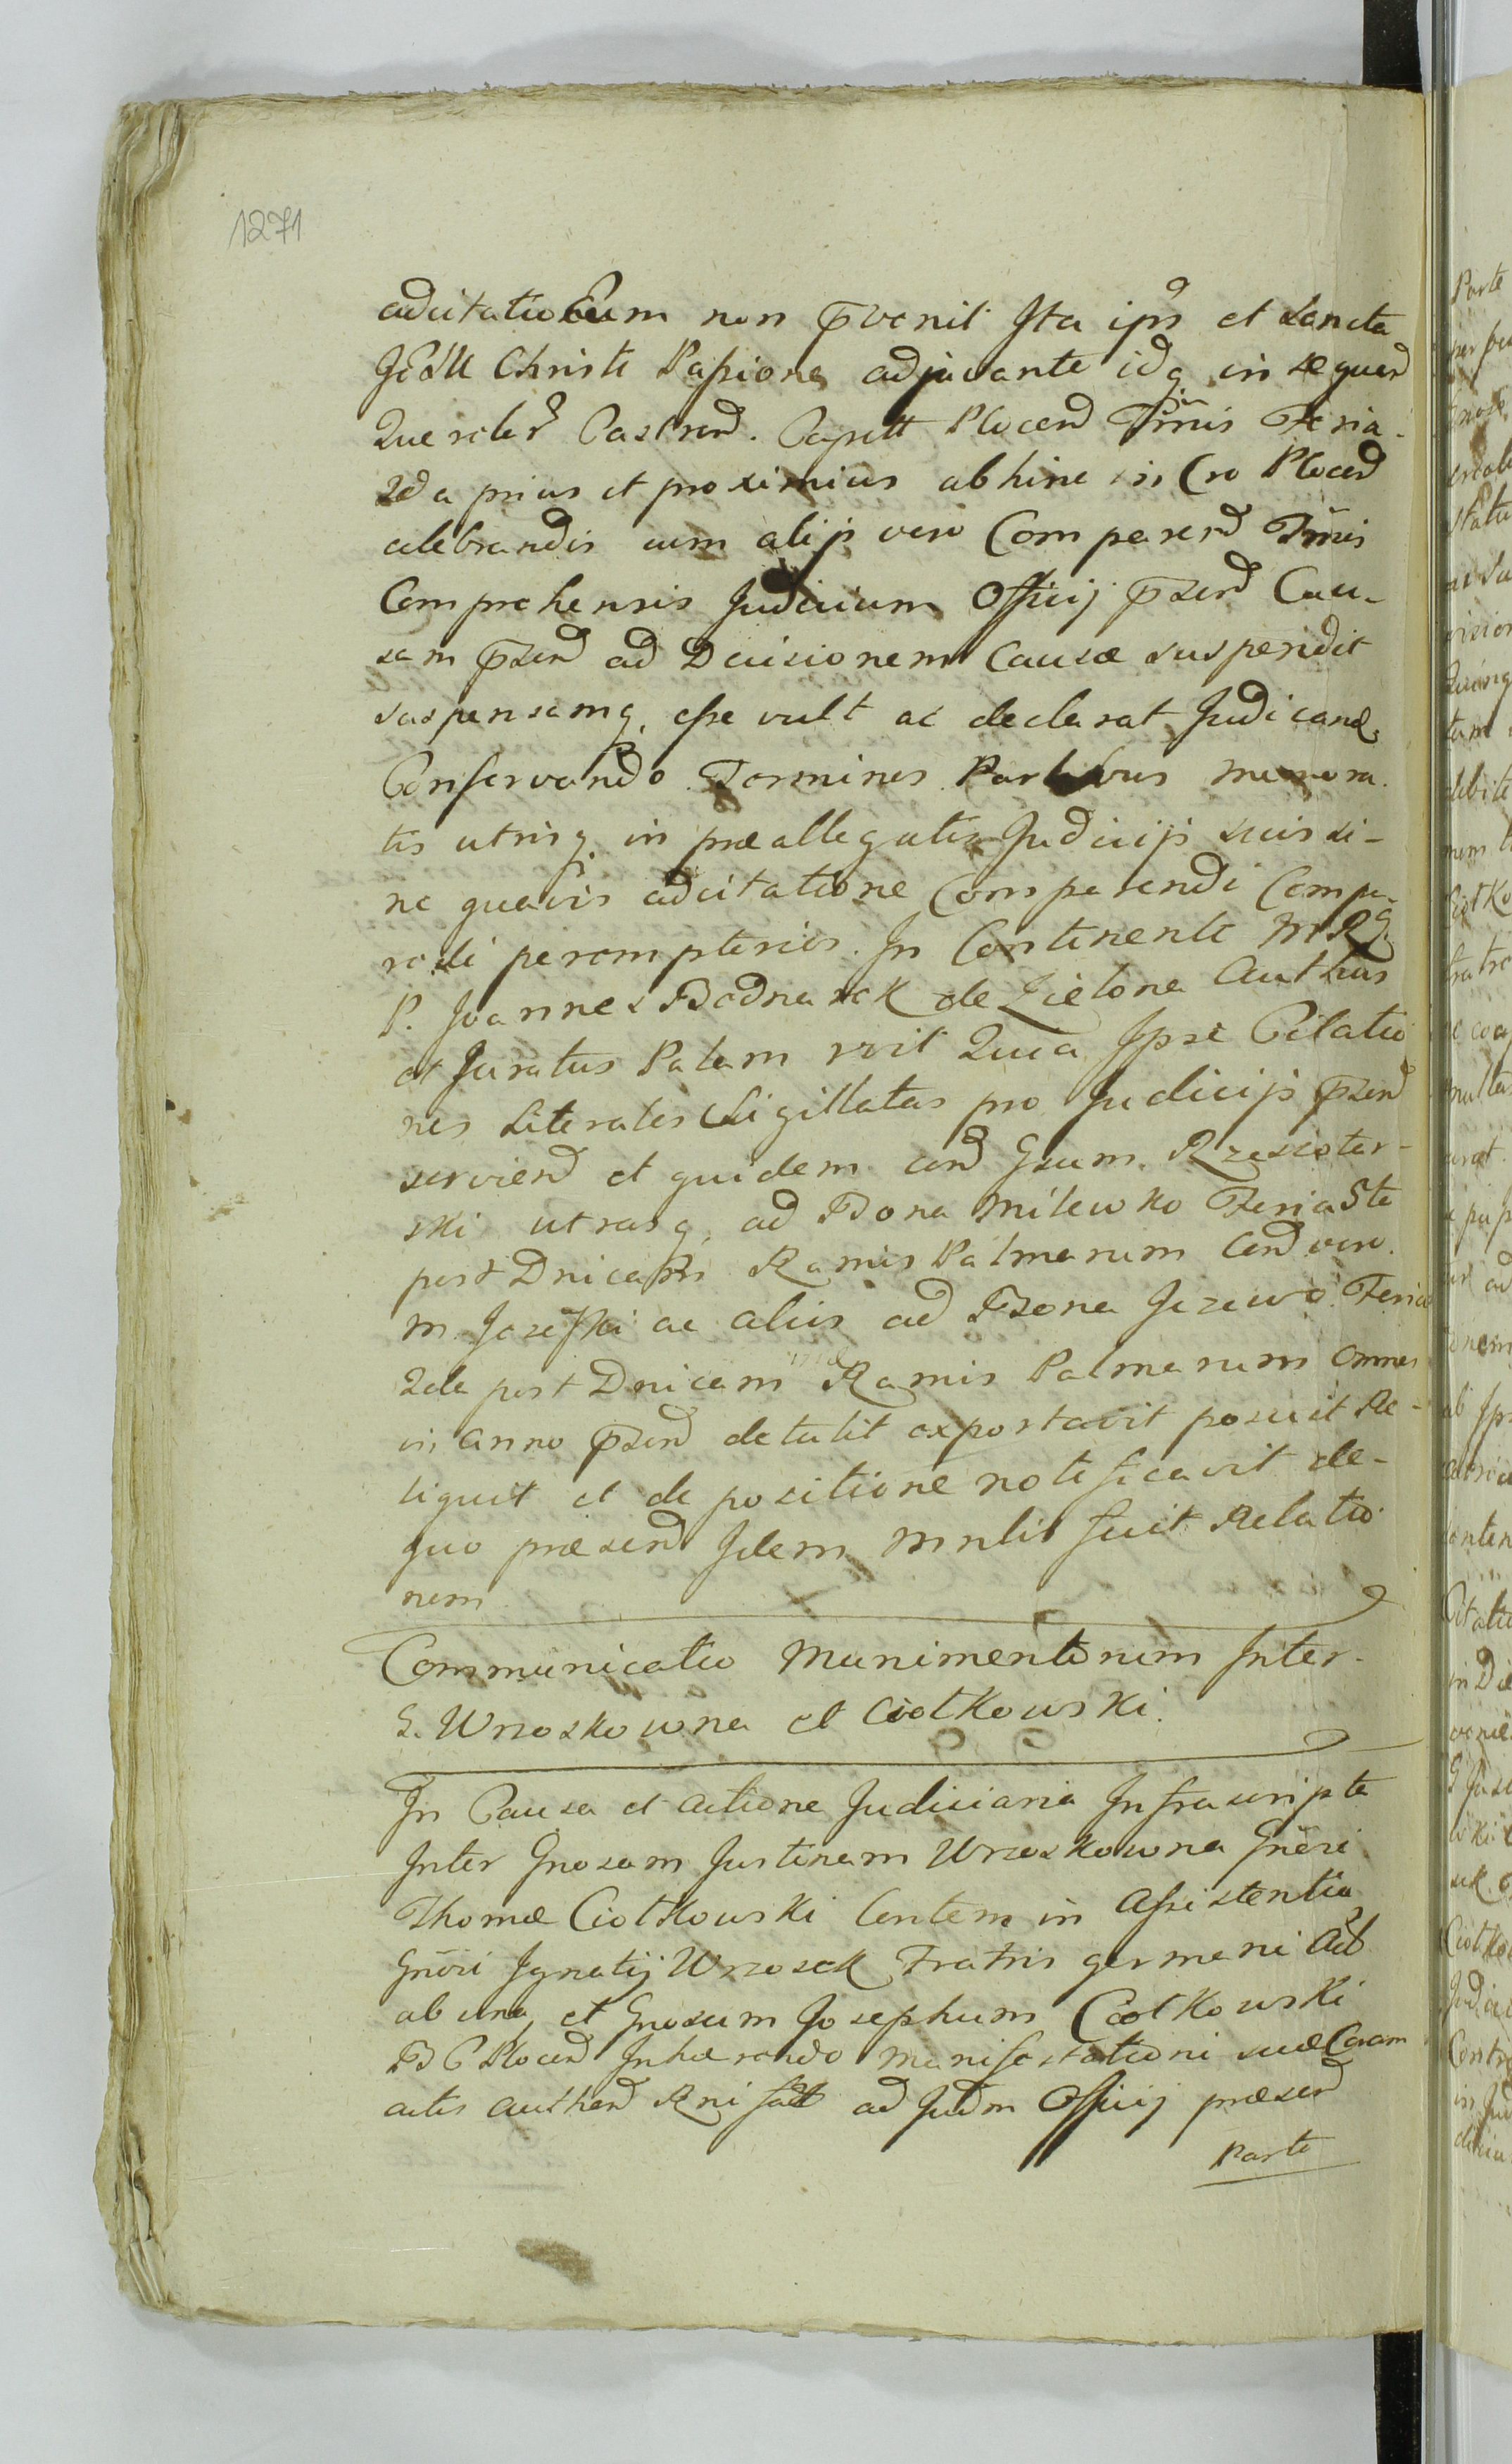 1271
adcitatio Cum non p̄venit Ita ips et Sancta
JESU Christi Passione adjuvante idq in sequend
Querelar Castrend. Capitt Plocend Tr̄mis Feria
2da prius et proximius abhinc in Cro Plocend
celebrandis cum alijs vero Comparend Tr̄mis
Comprehensis Judicium Officij p̄send Cau-
sam p̄send ad Decisionem Causæ suspendit
suspensamq esse vult ac declarat Judicand
Conservando Terminos Partibus memora-
tis utrisq in præallegatis Judicijs suis si-
ne quavis adcitatione Comparendi Compa-
rendi peremptorios. In Continenti M Rg
P. Joannes Bednarek de Zielona Authus
et Juratus Palam rvit Quia Ipse Citatio
nes Literales Sigillatas pro Judicijs p̄send
serviend et quidem cend Gsum Rzeszotar-
ski utrasq ad Bona Milewko Feria 5ta
post Dnicam Ramis Palmarum Cend vero
M. Jozefki ac aliis ad Bona Jezewo Feria
2da post Dnicam Ramis Palmarum omnes
in Anno p̄send detulit exportavit posuit Re-
liquit et de positione notificavit de-
quo præsend Idem Mnlis fecit Relatio
nem
Communicatio Munimentorum Inter
G. Wrzoskowna et Ciołkowski.
In Causa et actione Judiciaria Infrascripta
Inter Gnosam Justinam Wrzoskowna Gnēri
Thomæ Ciołkowski Contem in Assistentia
Gnōri Ignatij Wrzosek Fratris germani Act
ab una, et Gnosum Josephum Ciołkowski
B C Plocend Inhærendo Manifestationi suæ Coram
actis Authend Rni fact ad Judm Officij præsend
Parte